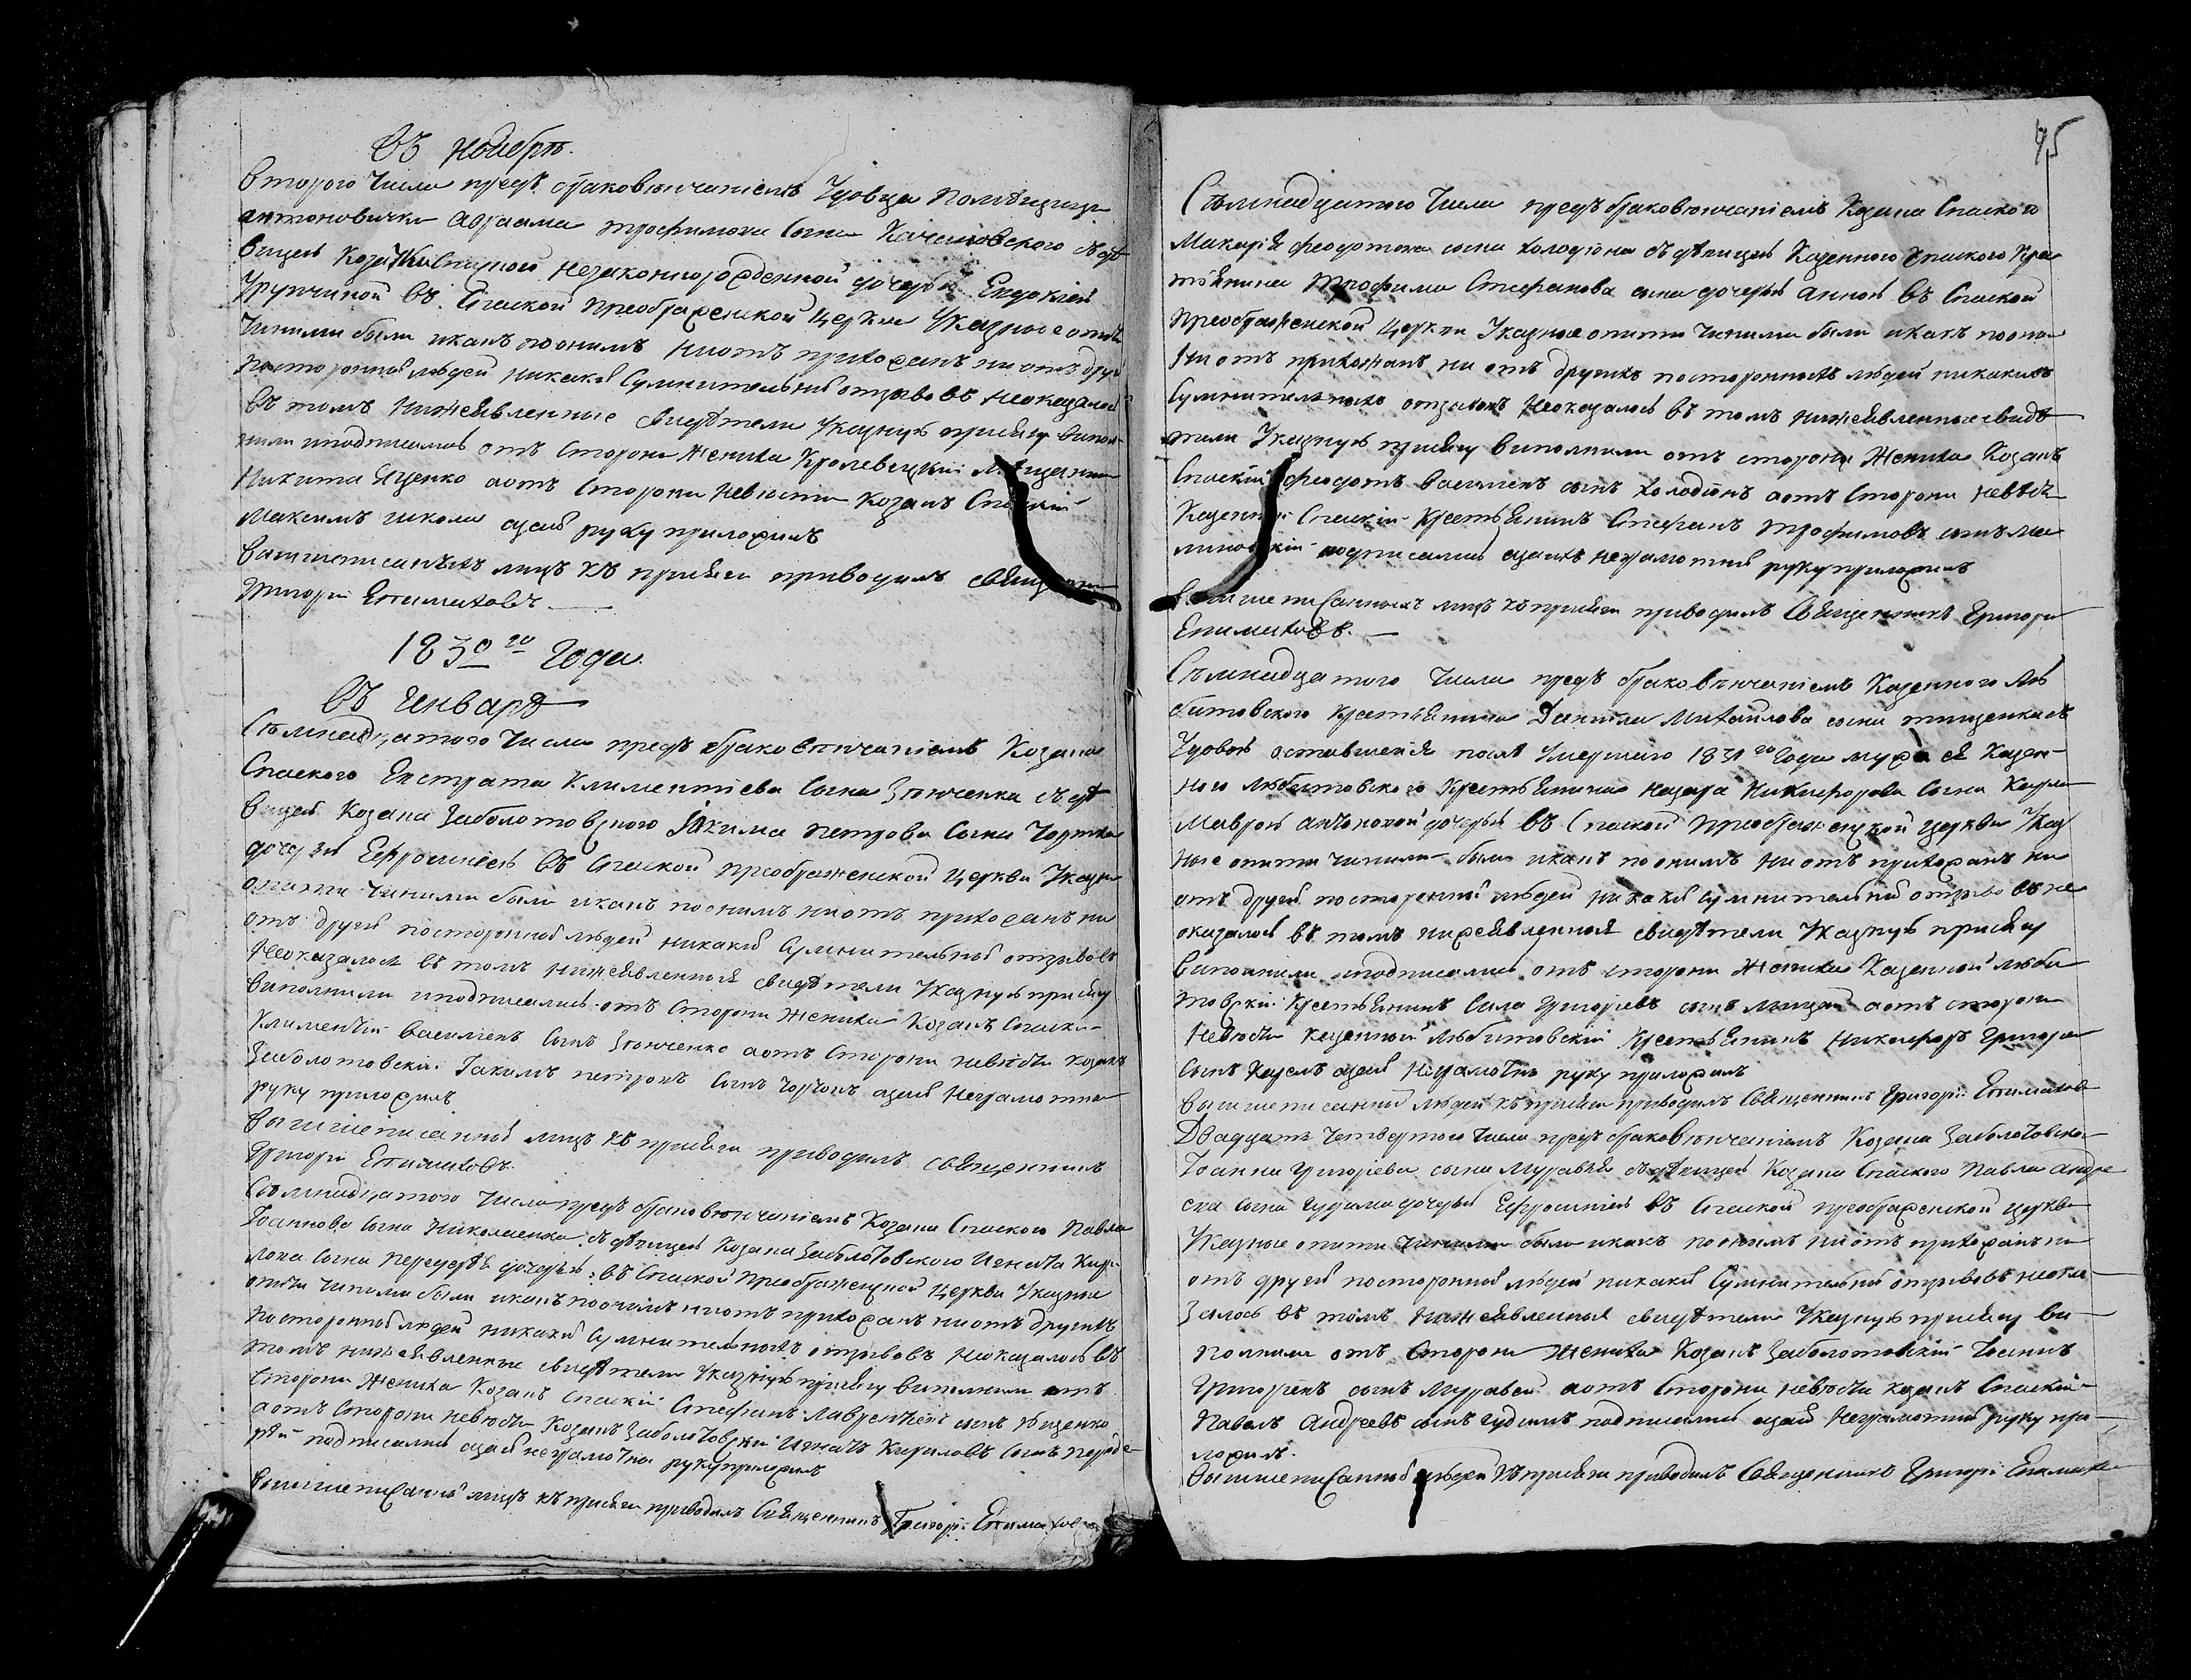 Въ ноябрѣ.
Второго числа предъ браковѣнчаніемъ Удовца помѣщицы
антоновички Авраама трофимова сына Качановского съ дѣ
вицей незаконнорожденной дочерю Евдокіей
въ Спаской преображенской церкви Указные опити
чиними были икакъ поонимъ ниотъ прихожанъ ни отъ друг
посторонной людей никакой сумнителной отзывовъ неоказалось
въ томъ нижеявленные свидѣтели Указную присягу випол
нили иподписались отъ стороны жениха Кролевецкій мѣщанинъ
Никита Яценко аотъ стороны невѣсти козакъ Спаскій
Максимъ школа руку приложилъ
вышеписанныхъ лицъ къ присяги приводилъ священникъ
Григорій Епимаховъ
1830 го Года.
Въ Генварѣ
Сѣмнадцатого числа предъ браковѣнчаніемъ Козака
Спаского Евстрата Климентіева сына Зѣнченка съ дѣ
вицей Козака Заболотовского Іякима петрова сына
дочерю Ефросиніей въ Спаской преображенской церкви Указни
опити чиними были икакъ поонимъ ниотъ прихожанъ ни
отъ другой посторонной людей никакой сумнителной отзывовъ
Неоказалось въ томъ нижеявленной свидѣтели Указную присягу
виполнили иподписались отъ стороны жениха Козакъ Спаски
Климентій василіевъ сынъ Зѣнченко аотъ стороны невѣсти козакъ
Заболотовскій Іакимъ петровъ сынъ неграмотни
руку приложилъ
вышеписанной лицъ къ присяги приводилъ священникъ
Григорій Епимаховъ.
Сѣмнадцатого числа предъ браковѣнчаніемъ Козака Спаского Павла
Іоаннова сына Николаенка съ дѣвицей Козака Заболотовского Игната Кири
лова сына дочерю въ Спаской преображенской церкви Указные
опити чиними были икакъ поонимъ ниотъ прихожанъ ниотъ другихъ
посторонной людей никакой сумнителныхъ отзывовъ неоказалось въ
томъ нижеявленные свидѣтели Указную присягу виполнили отъ
стороны жениха Козакъ Спаскій Стефанъ Лаврентіевъ сынъ
аотъ стороны невѣсти Козакъ Заболотовскій Игнатъ Кириловъ сынъ
подписались неграмотни руку приложилъ
вышеписанной лицъ къ присяги приводилъ Священникъ Григорій Епимаховъ
Сѣмнадцатого числа предъ браковѣнчаніемъ Козака Спаского
Макарія феодотова сына холодiона съ дѣвицей Казенного Спаского Кре
стянина Трофима Стефанова сына дочерю Анной въ Спаской
преображенской церкви Указные опити чиними были икакъ поони
ниотъ прихожанъ ни отъ другихъ постороннихъ людей никакихъ
сумнителныхъ отзывовъ неоказалось въ томъ нижеявленные свидѣ
тели Указную присягу виполнили отъ стороны Жениха Козакъ
Спаскій феодотъ василиевъ сынъ холодiонъ аотъ стороны невѣст
Казенный Спаскій Крестянинъ Стефанъ трофимовъ сынъ
подписались неграмотной руку приложилъ
вышеписанныхъ лицъ къ присяги приводилъ Священникъ Григорій
Епимаховъ.
Сѣмнадцатого числа предъ браковѣнчаніемъ Казенного Лю
битовского крестянина Данила Михайлова сына тищенка съ
Удовой оставшейся послѣ Умершаго 1831 го Года мужа ея Казен
ного любитовского Крестянина назара Никифорова сына
Маврой дочерю въ Спаской преображенской церкви Указ
ные опити чинили были икакъ поонимъ ниотъ прихожанъ ни
отъ другой посторонной людей никакой сумнителной отзывовъ не
оказалось въ томъ нижеявленной свидѣтели Указную присягу
виполнили иподписались отъ стороны Жениха Казенной люби
товскій Крестянинъ Сила Григоріевъ сынъ аотъ стороны
Невѣсти казенной Любитовскій Крестянинъ Никифоръ Григоре
сынъ неграмотнъ руку приложилъ
вышеписанной людей къ присяги приводилъ Священникъ Григорій Епимахов
Двадцать четвертого числа предъ браковѣнчаніемъ Козака Заболотовско
Іоанна Григоріева сына Муравѣя съ дѣвицей Козака Спаского Павла андре
ева сына гудима дочерю Ефросиніей въ Спаской преображенской церкви
Указные опити чинили были икакъ поонимъ ниотъ прихожанъ ни
отъ другой посторонной людей никакой сумнителной отзывовъ неока
залось въ томъ нижеявленной свидѣтели Указную присягу ви
полнили отъ стороны жениха Козакъ Заболотовскій Іоаннъ
Григоревъ сынъ Муравей аотъ стороны невѣсти козакъ Спаскій
Павелъ Андреевъ сынъ гудимъ подписались неграмотной руку при
ложилъ.
вышеписанной людей къ присяги приводилъ Священникъ Григорій Епимахов